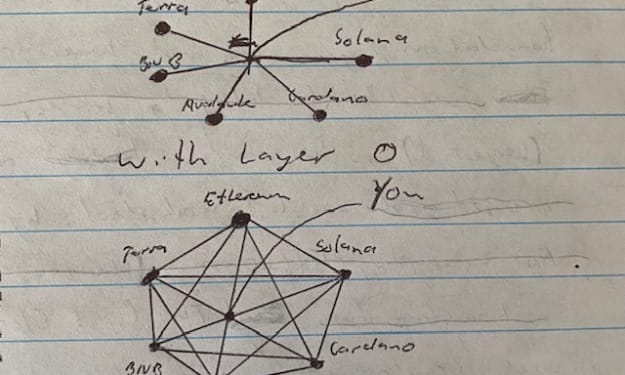 Terra
Solana
BNB
Avalanche Cardano
with Layer 0
Ethereum You
Terra Solana
Cardano
BNB